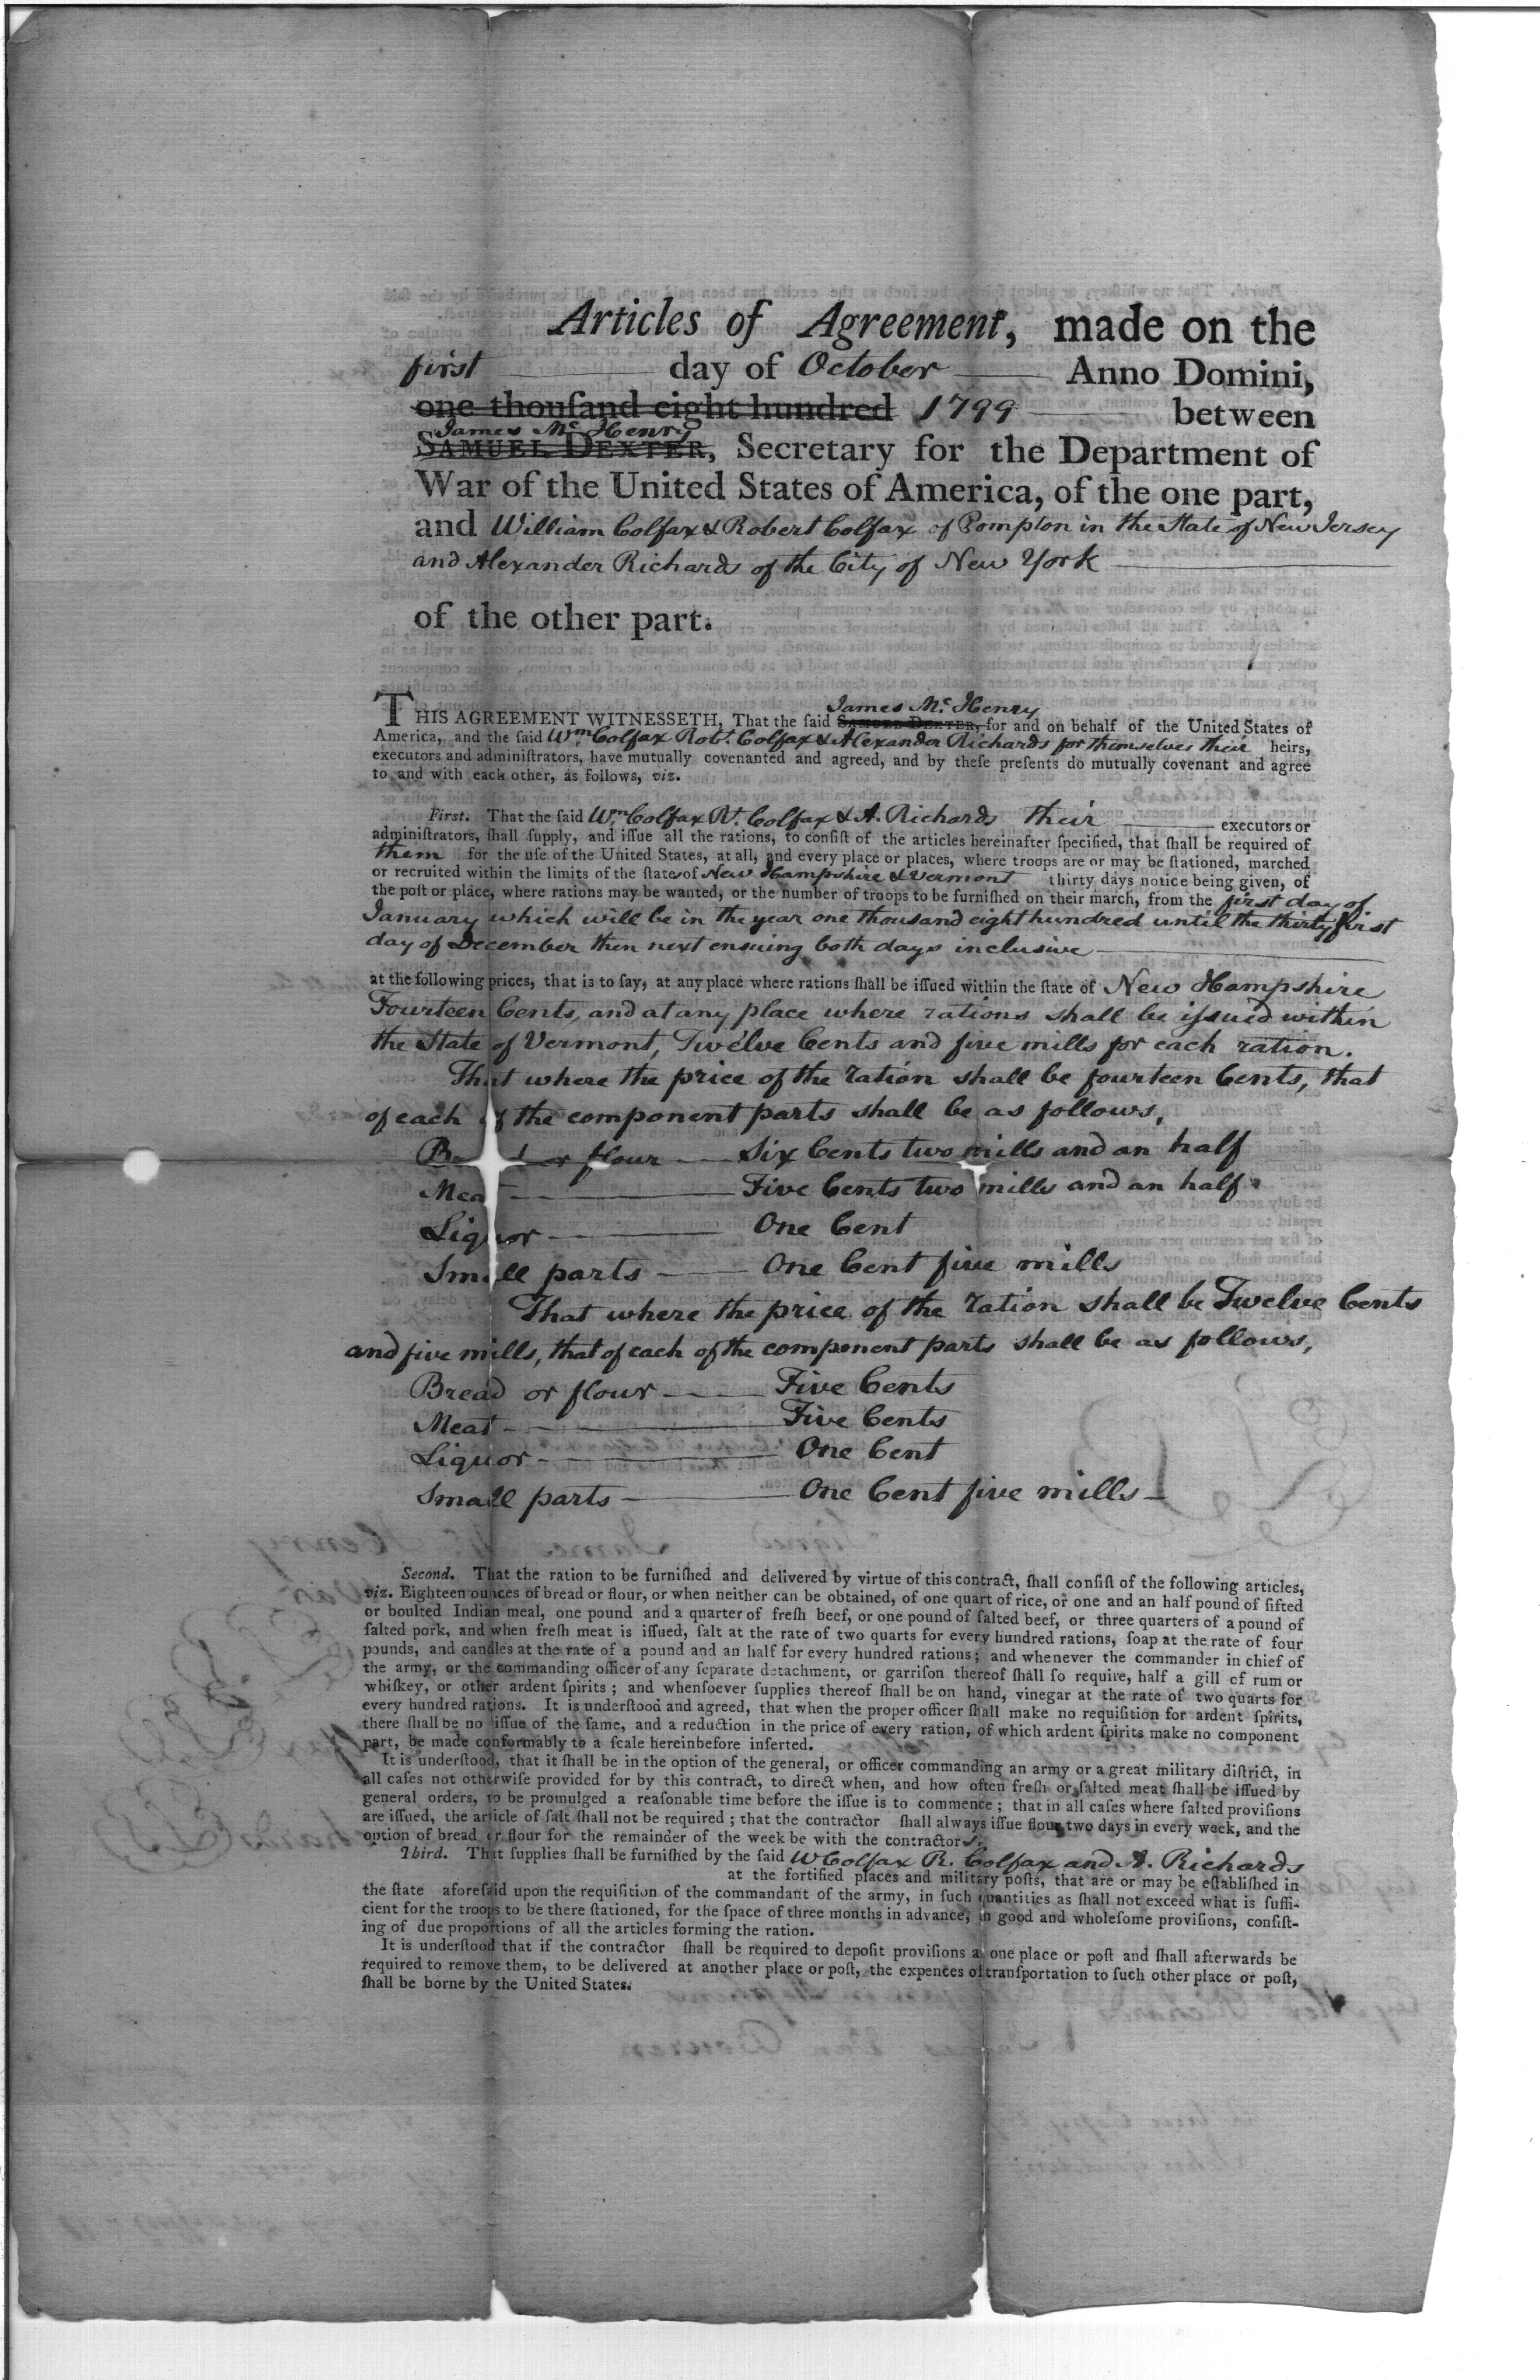 Articles of Agreement, made on the
first day of October Anno Domini,
one thouſand eight hundred 1799 between
James Mc Henry
SAMUEL DEXTER, Secretary for the Department of
War of the United States of America, of the one part,
and William Colfax & Robert Colfax of Pompton in the State of New Jersey
and Alexander Richards of the City of New York
of the other part.
James Mc Henry
THIS AGREEMENT WITNESSETH, That the said SAMUEL DEXTER, for and on behalf of the United States of
America, and the said Wm Colfax Robt. Colfax & Alexander Richards for themselves their heirs,
executors and adminiſtrators, have mutually covenanted and agreed, and by theſe preſents do mutually covenant and agree
to and with each other, as follows, viz.
First. That the said Wm Colfax Rt. Colfax & A. Richards their executors or
adminiſtrators, ſhall ſupply, and iſſue all the rations, to conſiſt of the articles hereinafter ſpecified, that ſhall be required of
them for the uſe of the United States, at all, and every place or places, where troops are or may be ſtationed, marched
or recruited within the limits of the states of New Hampshire & Vermont thirty days notice being given, of
the poſt or place, where rations may be wanted, or the number of troops to be furniſhed on their march, from the first day of
January which will be in the year one thousand eight hundred until the thirty first
day of December then next ensuing both days inclusive
at the following prices, that is to ſay, at any place where rations ſhall be iſſued within the ſtate of New Hampshire
Fourteen Cents, and at any place where rations shall be iſsued within
the State of Vermont, Twelve Cents and five mills for each ration.
That where the price of the ration shall be fourteen Cents, that
of each of the component parts shall be as follows,
Bread or flour Six Cents two mills and an half
Meat Five Cents two mills and an half
Liquor One Cent
Small parts One Cent five mills
That where the price of the ration shall be Twelve Cents
and five mills, that of each of the component parts shall be as follows,
Bread or flour Five Cents
Meat Five Cents
Liquor One Cent
Small parts One Cent five mills
Second. That the ration to be furniſhed and delivered by virtue of this contract, ſhall conſiſt of the following articles,
viz. Eighteen ounces of bread or flour, or when neither can be obtained, of one quart of rice, or one and an half pound of ſifted
or boulted Indian meal, one pound and a quarter of freſh beef, or one pound of ſalted beef, or three quarters of a pound of
ſalted pork, and when freſh meat is iſſued, ſalt at the rate of two quarts for every hundred rations, ſoap at the rate of four
pounds, and candles at the rate of a pound and an half for every hundred rations; and whenever the commander in chief of
the army, or the commanding officer of any ſeparate detachment, or garriſon thereof ſhall ſo require, half a gill of rum or
whiſkey, or other ardent ſpirits; and whenſoever ſupplies thereof ſhall be on hand, vinegar at the rate of two quarts for
every hundred rations. It is underſtood and agreed, that when the proper officer ſhall make no requiſition for ardent ſpirits,
there ſhall be no iſſue of the ſame, and a reduction in the price of every ration, of which ardent ſpirits make no component
part, be made conformably to a ſcale hereinbefore inſerted.
It is underſtood, that it ſhall be in the option of the general, or officer commanding an army or a great military diſtrict, in
all caſes not otherwiſe provided for by this contract, to direct when, and how often freſh or ſalted meat ſhall be iſſued by
general orders, to be promulged a reaſonable time before the iſſue is to commence; that in all caſes where ſalted proviſions
are iſſued, the article of ſalt ſhall not be required; that the contractor ſhall always iſſue flour two days in every week, and the
option of bread or flour for the remainder of the week be with the contractors.
Third. That ſupplies ſhall be furniſhed by the ſaid W Colfax R. Colfax and A. Richards
at the fortified places and military poſts, that are or may be eſtabliſhed in
the ſtate aforeſaid upon the requiſition of the commandant of the army, in ſuch quantities as ſhall not exceed what is ſuffi-
cient for the troops to be there ſtationed, for the ſpace of three months in advance, in good and wholeſome proviſions, conſiſt-
ing of due proportions of all the articles forming the ration.
It is underſtood that if the contractor ſhall be required to depoſit proviſions at one place or poſt and ſhall afterwards be
required to remove them, to be delivered at another place or poſt, the expences of tranſportation to ſuch other place or poſt,
ſhall be borne by the United States.